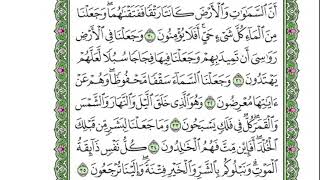 أَنَّ ٱلسَّمَٰوَٰتِ وَٱلْأَرْضَ كَانَتَا رَتْقًا فَفَتَقْنَٰهُمَا ۖ وَجَعَلْنَا
مِنَ ٱلْمَآءِ كُلَّ شَىْءٍ حَىٍّ ۖ أَفَلَا يُؤْمِنُونَ ٣٠ وَجَعَلْنَا فِى ٱلْأَرْضِ
رَوَٰسِىَ أَن تَمِيدَ بِهِمْ وَجَعَلْنَا فِيهَا فِجَاجًا سُبُلًا لَّعَلَّهُمْ
يَهْتَدُونَ ٣١ وَجَعَلْنَا ٱلسَّمَآءَ سَقْفًا مَّحْفُوظًا ۖ وَهُمْ عَنْ
ءَايَٰتِهَا مُعْرِضُونَ ٣٢ وَهُوَ ٱلَّذِى خَلَقَ ٱلَّيْلَ وَٱلنَّهَارَ وَٱلشَّمْسَ
وَٱلْقَمَرَ ۖ كُلٌّ فِى فَلَكٍ يَسْبَحُونَ ٣٣ وَمَا جَعَلْنَا لِبَشَرٍ مِّن قَبْلِكَ
ٱلْخُلْدَ ۖ أَفَإِي۟ن مِّتَّ فَهُمُ ٱلْخَٰلِدُونَ ٣٤ كُلُّ نَفْسٍ ذَآئِقَةُ
ٱلْمَوْتِ ۗ وَنَبْلُوكُم بِٱلشَّرِّ وَٱلْخَيْرِ فِتْنَةً ۖ وَإِلَيْنَا تُرْجَعُونَ ٣٥